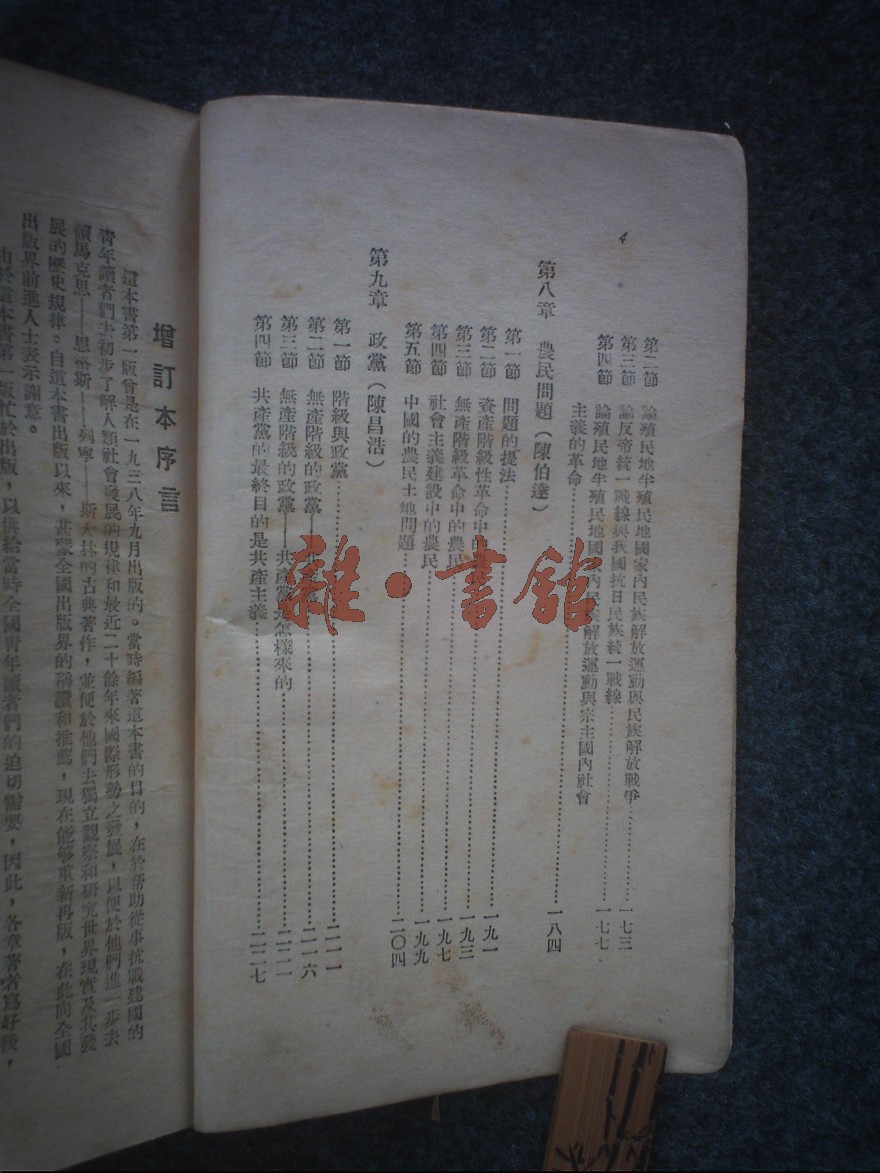 4
第二節 論殖民地半殖民地國家內民族解放運動與民族解放戰爭……一七三
第三節 論反帝統一戰線與我國抗日民族統一戰線……一七七
第四節 論殖民地半殖民地國家內民族解放運動與宗主國內社會
主義的革命……一八四
第八章 農民問題(陳伯達)
第一節 問題的提法……一九一
第二節 資產階級性革命中的農民……一九三
第三節 無產階級革命中的農民……一九七
第四節 社會主義建設中的農民……一九九
第五節 中國的農民土地問題……二〇四
第九章 政黨(陳昌浩)
第一節 階級與政黨……二一一
第二節 無產階級的政黨——共產黨……二一六
第三節 無產階級的政黨——共產黨是怎樣來的……二二一
第四節 共產黨的最終目的是共產主義……二二七
雜·書館
增訂本序言
這本書第一版曾是在一九三八年九月出版的。當時編著這本書的目的,在於幫助從事抗戰建國的
青年讀者們去初步了解人類社會發展的規律和最近二十餘年來國際形勢之發展,以便於他們進一步去
讀馬克思——恩格斯——列寧——斯大林的古典著作,並便於他們去獨立觀察和研究世界現實及其發
展的歷史規律。自這本書出版以來,甚蒙全國出版界的稱讚和推薦,現在能够重新再版,在此向全國
出版界前進人士表示謝意。
由於這本書第一版忙於出版,以供給當時全國青年讀者們的迫切需要,因此,各章著者寫好後,